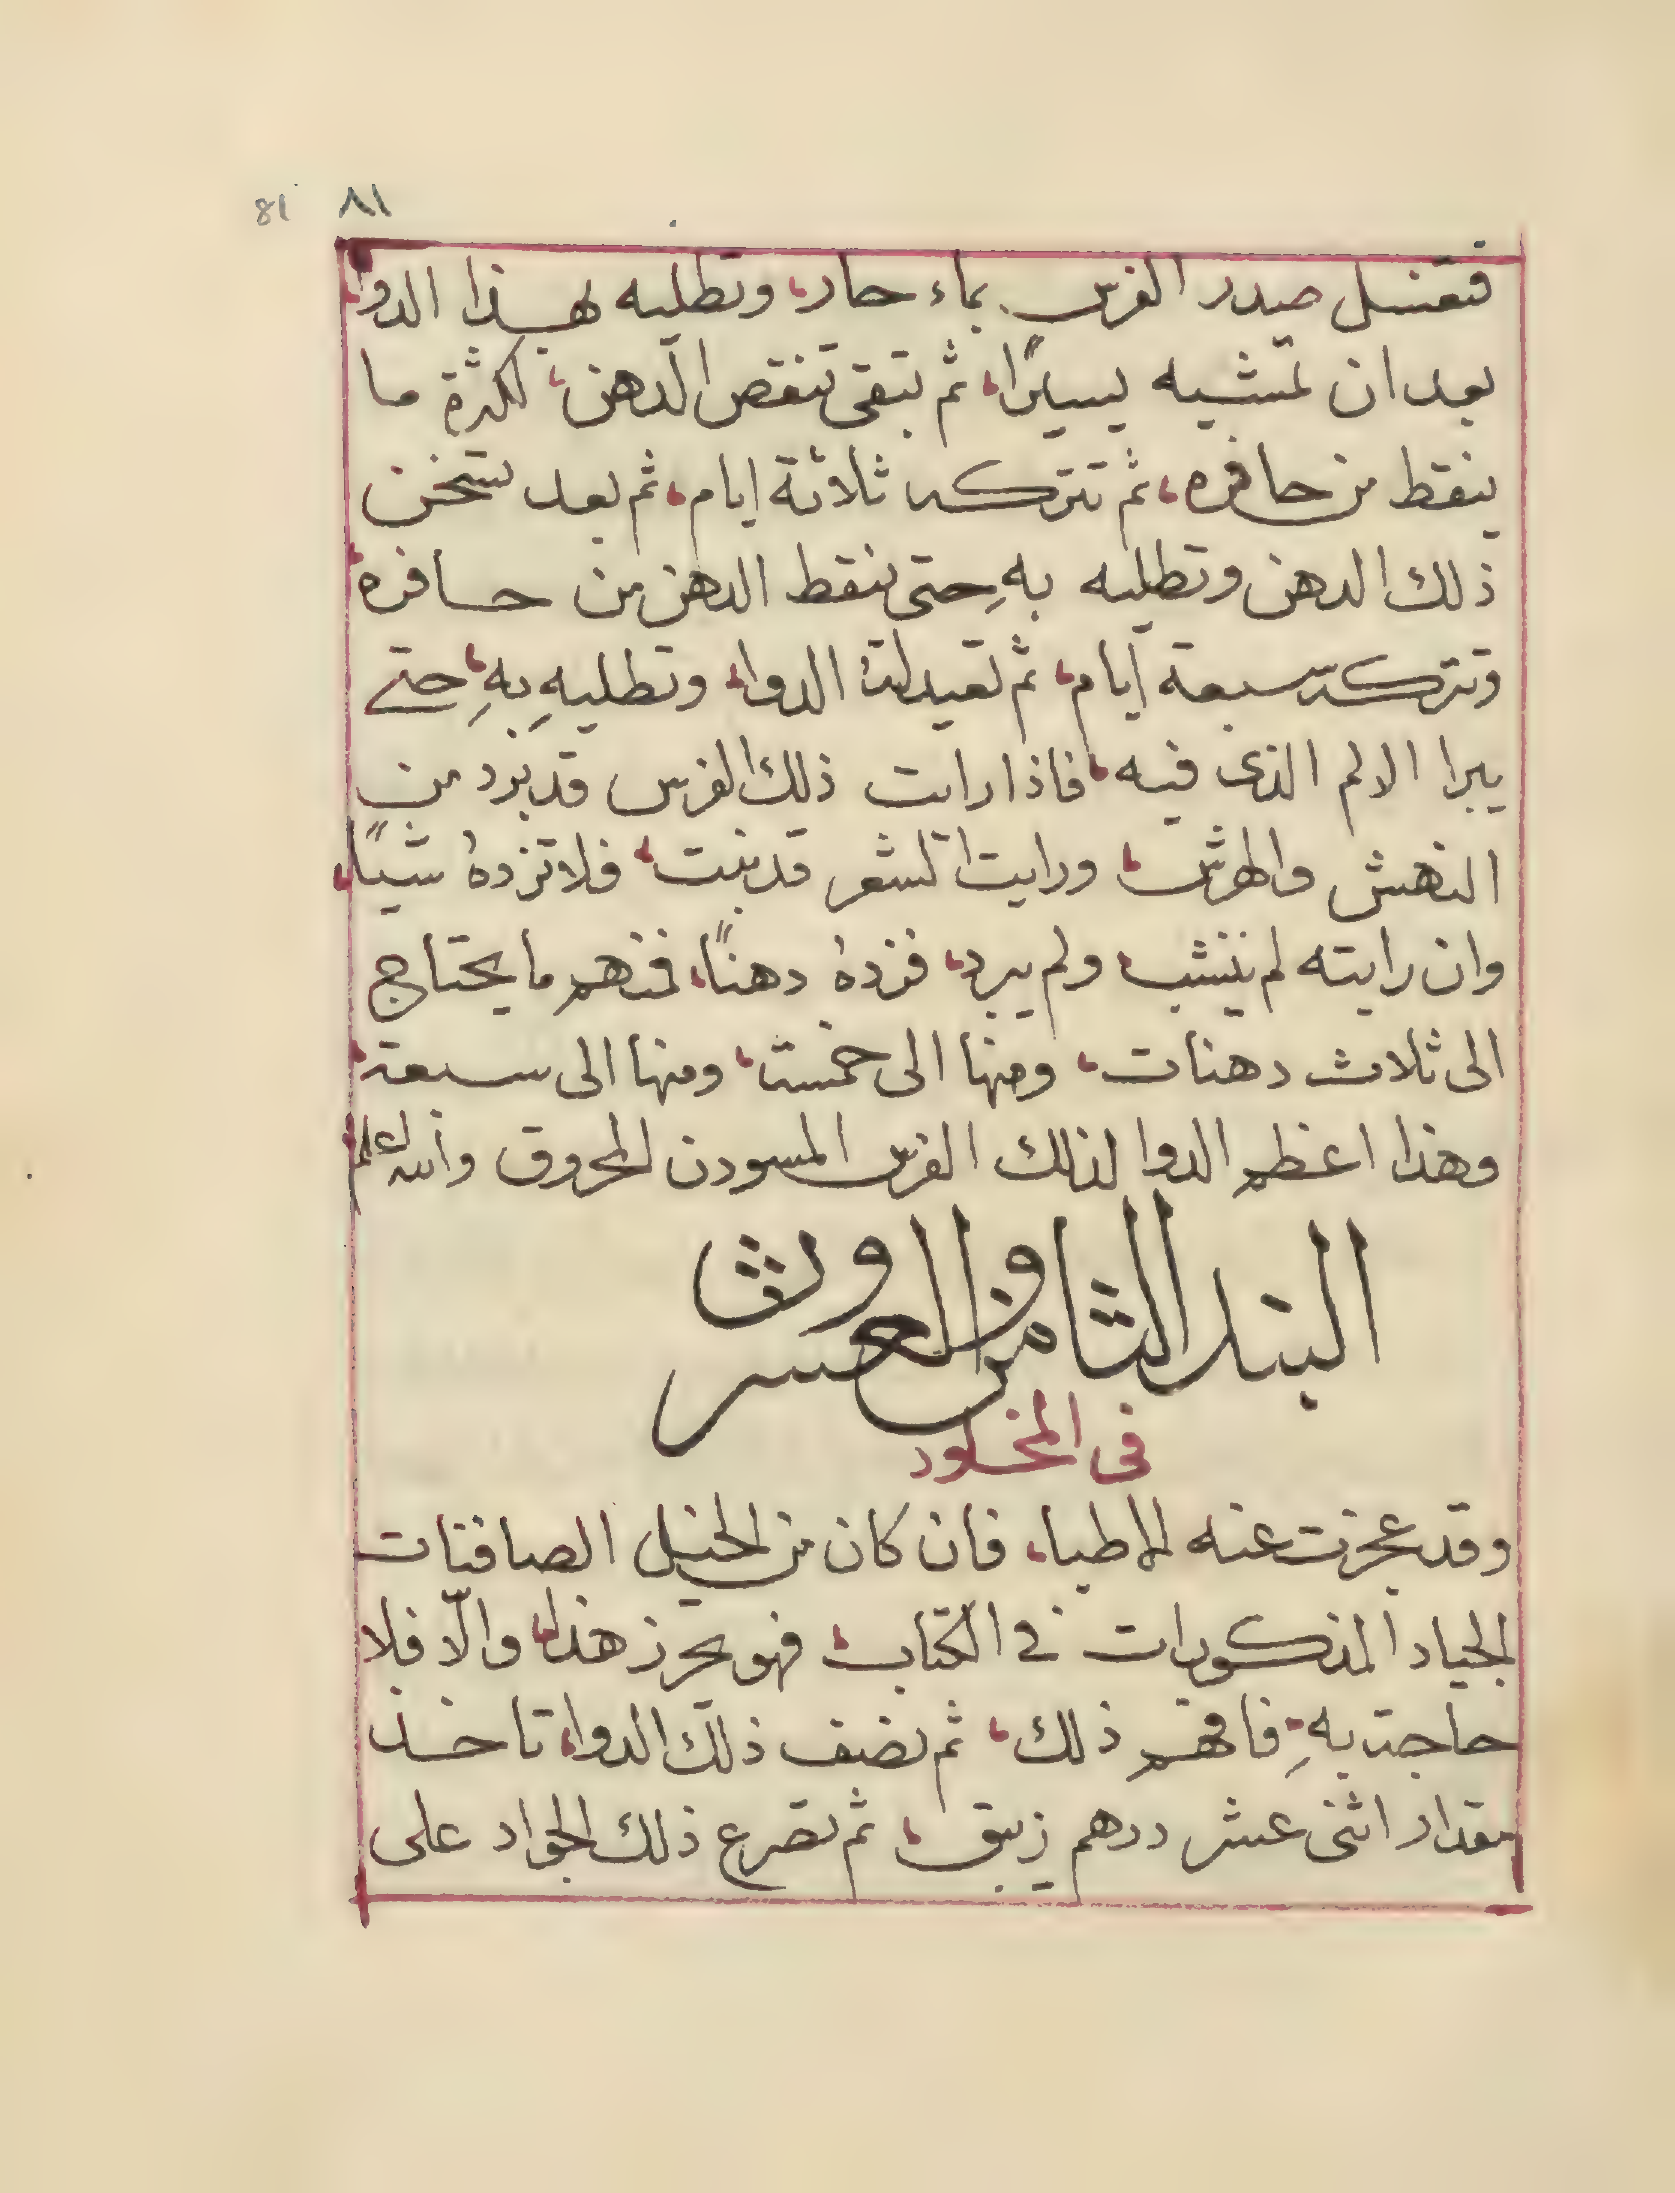 ٨١ 81
فتغسل صدر الفرس بماء حار، وتطليه بهذا الدوا
بعد ان تمشيه يسيرًا، ثم تبقى تنقص الدهن، لكثرة ما
ينقط من حافره، ثم تتركه ثلاثة ايام، ثم بعد تسخن
ذلك الدهن وتطليه بهِ حتى ينقط الدهن من حافره،
وتتركه سبعة ايام، ثم تعيد له الدوا، وتطليهِ بهِ، حتى
يبرا الالم الذى فيه، فاذا رايت ذلك الفرس قد برد من
النهش والهرش، ورايت الشعر قد نبت، فلا تزدهُ شيًا،
وان رايته لم ينشب ولم يبرد، فزدهُ دهنًا، فمنهم ما يحتاج
الى ثلاث دهنات، ومنها الى خمسة، ومنها الى سبعة،
وهذا اعظم الدوا لذلك الفرس المسودن المحروق والله اعلم
البند الثامن والعشرون
فى المخلود
وقد عجزت عنه الاطبا، فان كان من الخيل الصافنات
الجياد المذكورات في الكتاب، فهو يحرز هذا، والّا فلا
حاجة بهِ، فافهم ذلك، ثم نصف ذلك الدوا، تاخذ
مقدار اثنى عشر درهم زيبق، ثم تصرع ذلك الجواد على